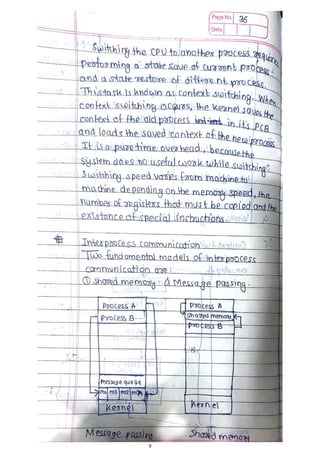 Page No. 36
Date
Switching the CPU to another process requires
Performing a state save of current process
and a state restore of different process.
This task is known as context switching. When
context switching occurs, the kernel saves the
context of the old process in its PCB
and loads the saved context of the new process
It is a pure time overhead, because the
system does no useful work while switching.
Switching speed varies from machine to
machine depending on the memory speed, the
number of registers that must be copied and the
existance of special instructions.
Interprocess communication
Two fundamental models of interprocess
communication are:
① shared memory & Message passing.
Process A
Process B
message queue
m0 m1 m2 m3
Kernel
Message passing
Process A
Shared memory
Process B
Kernel
Shared memory